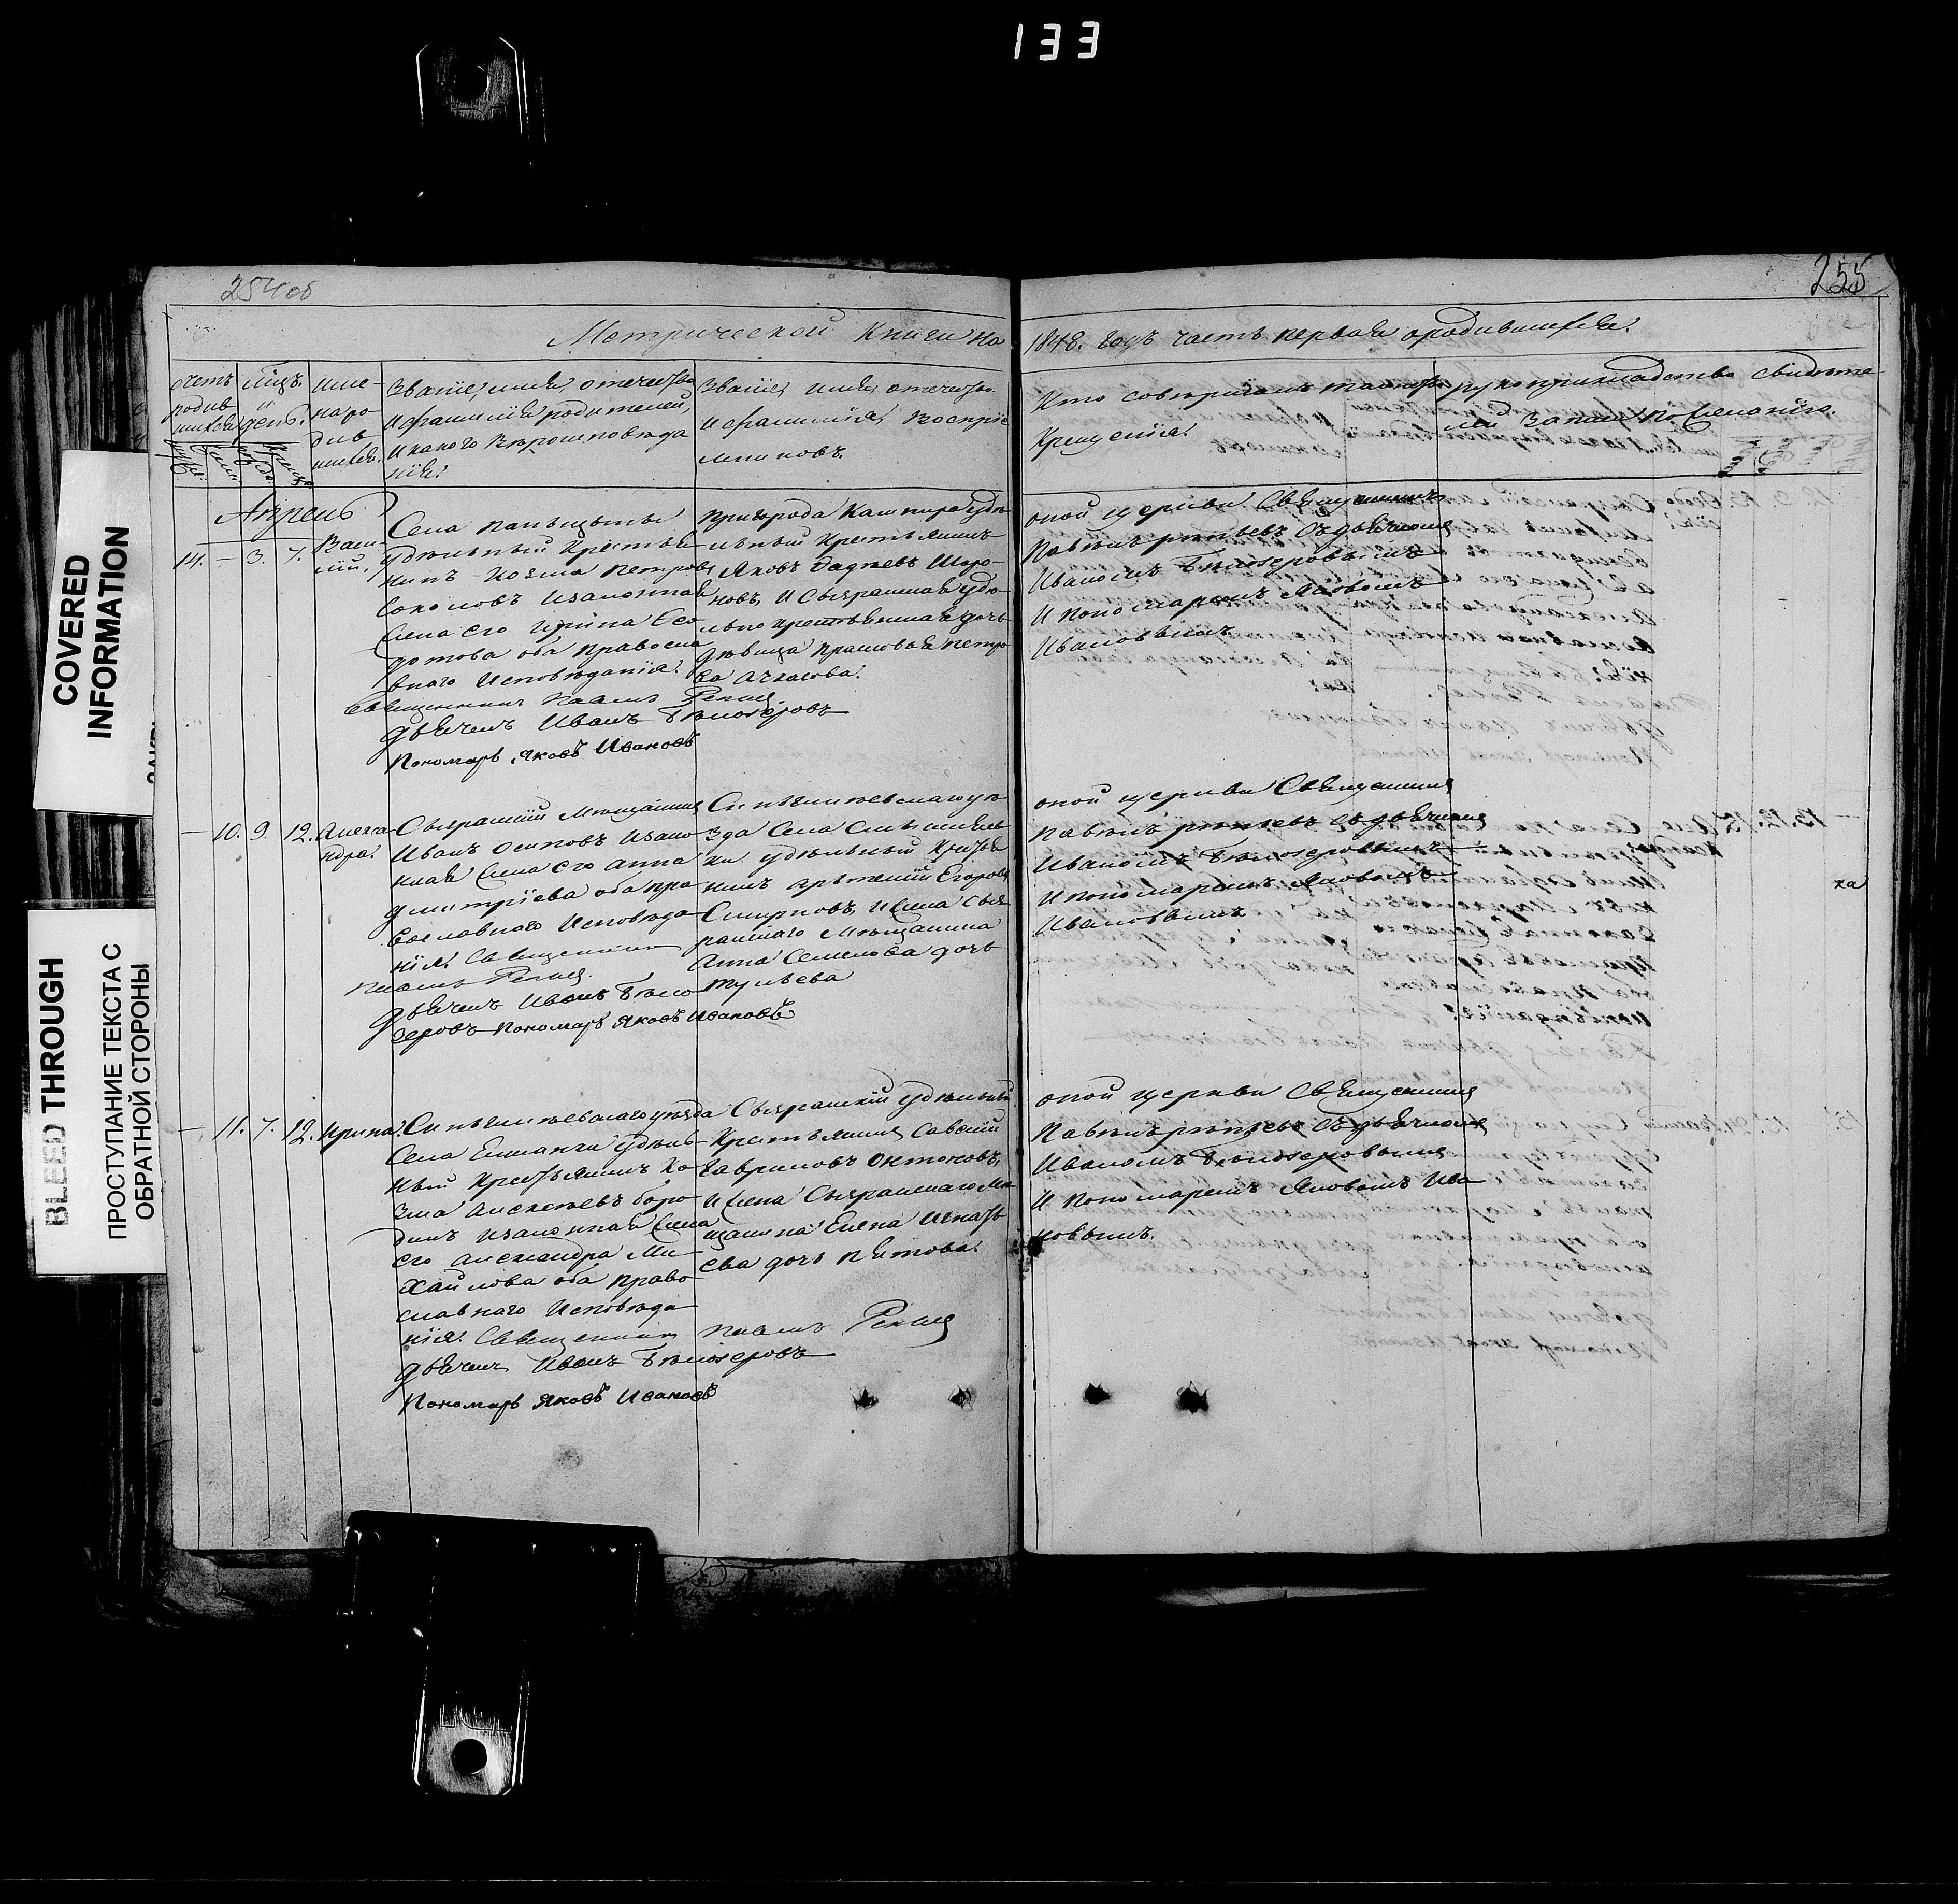 133
254 об
255
COVERED
INFORMATION
BLEED THROUGH
ПРОСТУПАНИЕ ТЕКСТА С
ОБРАТНОЙ СТОРОНЫ
Метрической Книги на 1848. годъ часть первая о родившихся.
счетъ
родив
шихся
мѣсяцъ
и
день.
име-
на ро
див
шихся.
Званіе, имя, отечество
и фамилія родителей,
и какого вѣроисповѣда
нія.
Званіе, имя, отечество
и фамилія воспріе
мниковъ.
Кто совершалъ таинство
Крещенія.
рукоприкладство свидѣте
лей записи по желанію.
Апрель
14. — 3. 7.
Васи
лій.
Села
удѣльный крестья
нинъ Козма Петровъ
Соколовъ и законная
жена его Ирина Ѳео
дотова оба православ
внаго исповѣданія.
Священникъ Павелъ Репьев
Дьячекъ Иванъ Бѣлозеровъ
Пономарь Яковъ Ивановъ
Пригорода Кашпира удѣ
льный крестьянинъ
Яковъ
новъ, и Сызранская удѣ
льно крестьянская дочь
дѣвица Прасковья Петро
ва Ачкасова.
оной церкви Священникъ
Павелъ Репьевъ съ дьячкомъ
Иваномъ Бѣлозеровымъ
и пономаремъ Яковомъ
Ивановымъ
— 10. 9. 12.
Алекса
ндра.
Сызранскій мѣщанинъ
Иванъ Осиповъ и зако
нная жена его Анна
Дмитріева оба пра
вославнаго исповѣда
нія. Священникъ
Павелъ Репьев.
Дьячекъ Иванъ Бѣло
зеровъ Пономарь Яковъ Ивановъ
Сингилеевскаго уѣ
зда Села
удѣльный крестья
нинъ Арѳтеній Егоровъ
Смирновъ, и жена Сыз
ранскаго мѣщанина
Анна Семенова дочь
Тулѣева
оной церкви Священникъ
Павелъ Репьевъ съ дьячкомъ
Иваномъ Бѣлозеровымъ
и пономаремъ Яковомъ
Ивановымъ
ка
— 11. 7. 12.
Ирина.
Сингилеевскаго уѣзда
Села Елшанки удѣль
ный крестьянинъ Ко
зма Алексѣевъ Боро
динъ и законная жена
его Александра Ми
хайлова оба право
славнаго исповѣда
нія. Священникъ Павелъ Репьев
Дьячекъ Иванъ Бѣлозеровъ
Пономарь Яковъ Ивановъ
Сызранскій удѣльный
крестьянинъ Савелій
Гавриловъ Октоновъ,
и жена Сызранскаго мѣ
щанина Елена Игнать
ева дочь Пятова.
оной церкви Священникъ
Павелъ Репьевъ съ дьячкомъ
Иваномъ Бѣлозеровымъ
и пономаремъ Яковомъ Ива
новымъ.